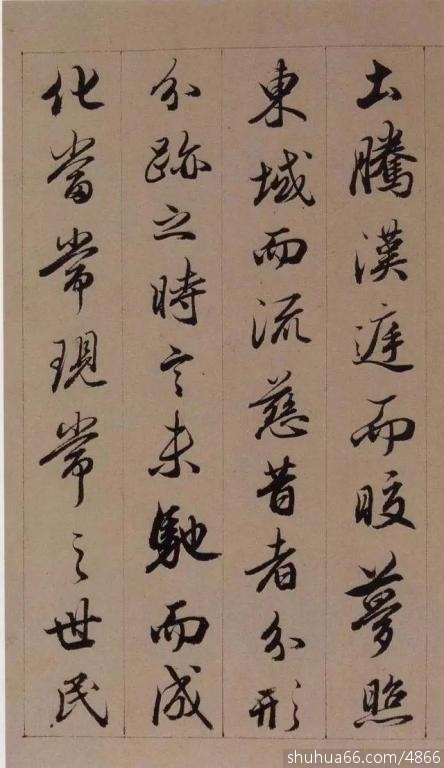 土騰漢遳而晈夢照
東域而流慈昔者分形
分跡之時言未馳而成
化當常現常之世民
shuhua66.com/4866